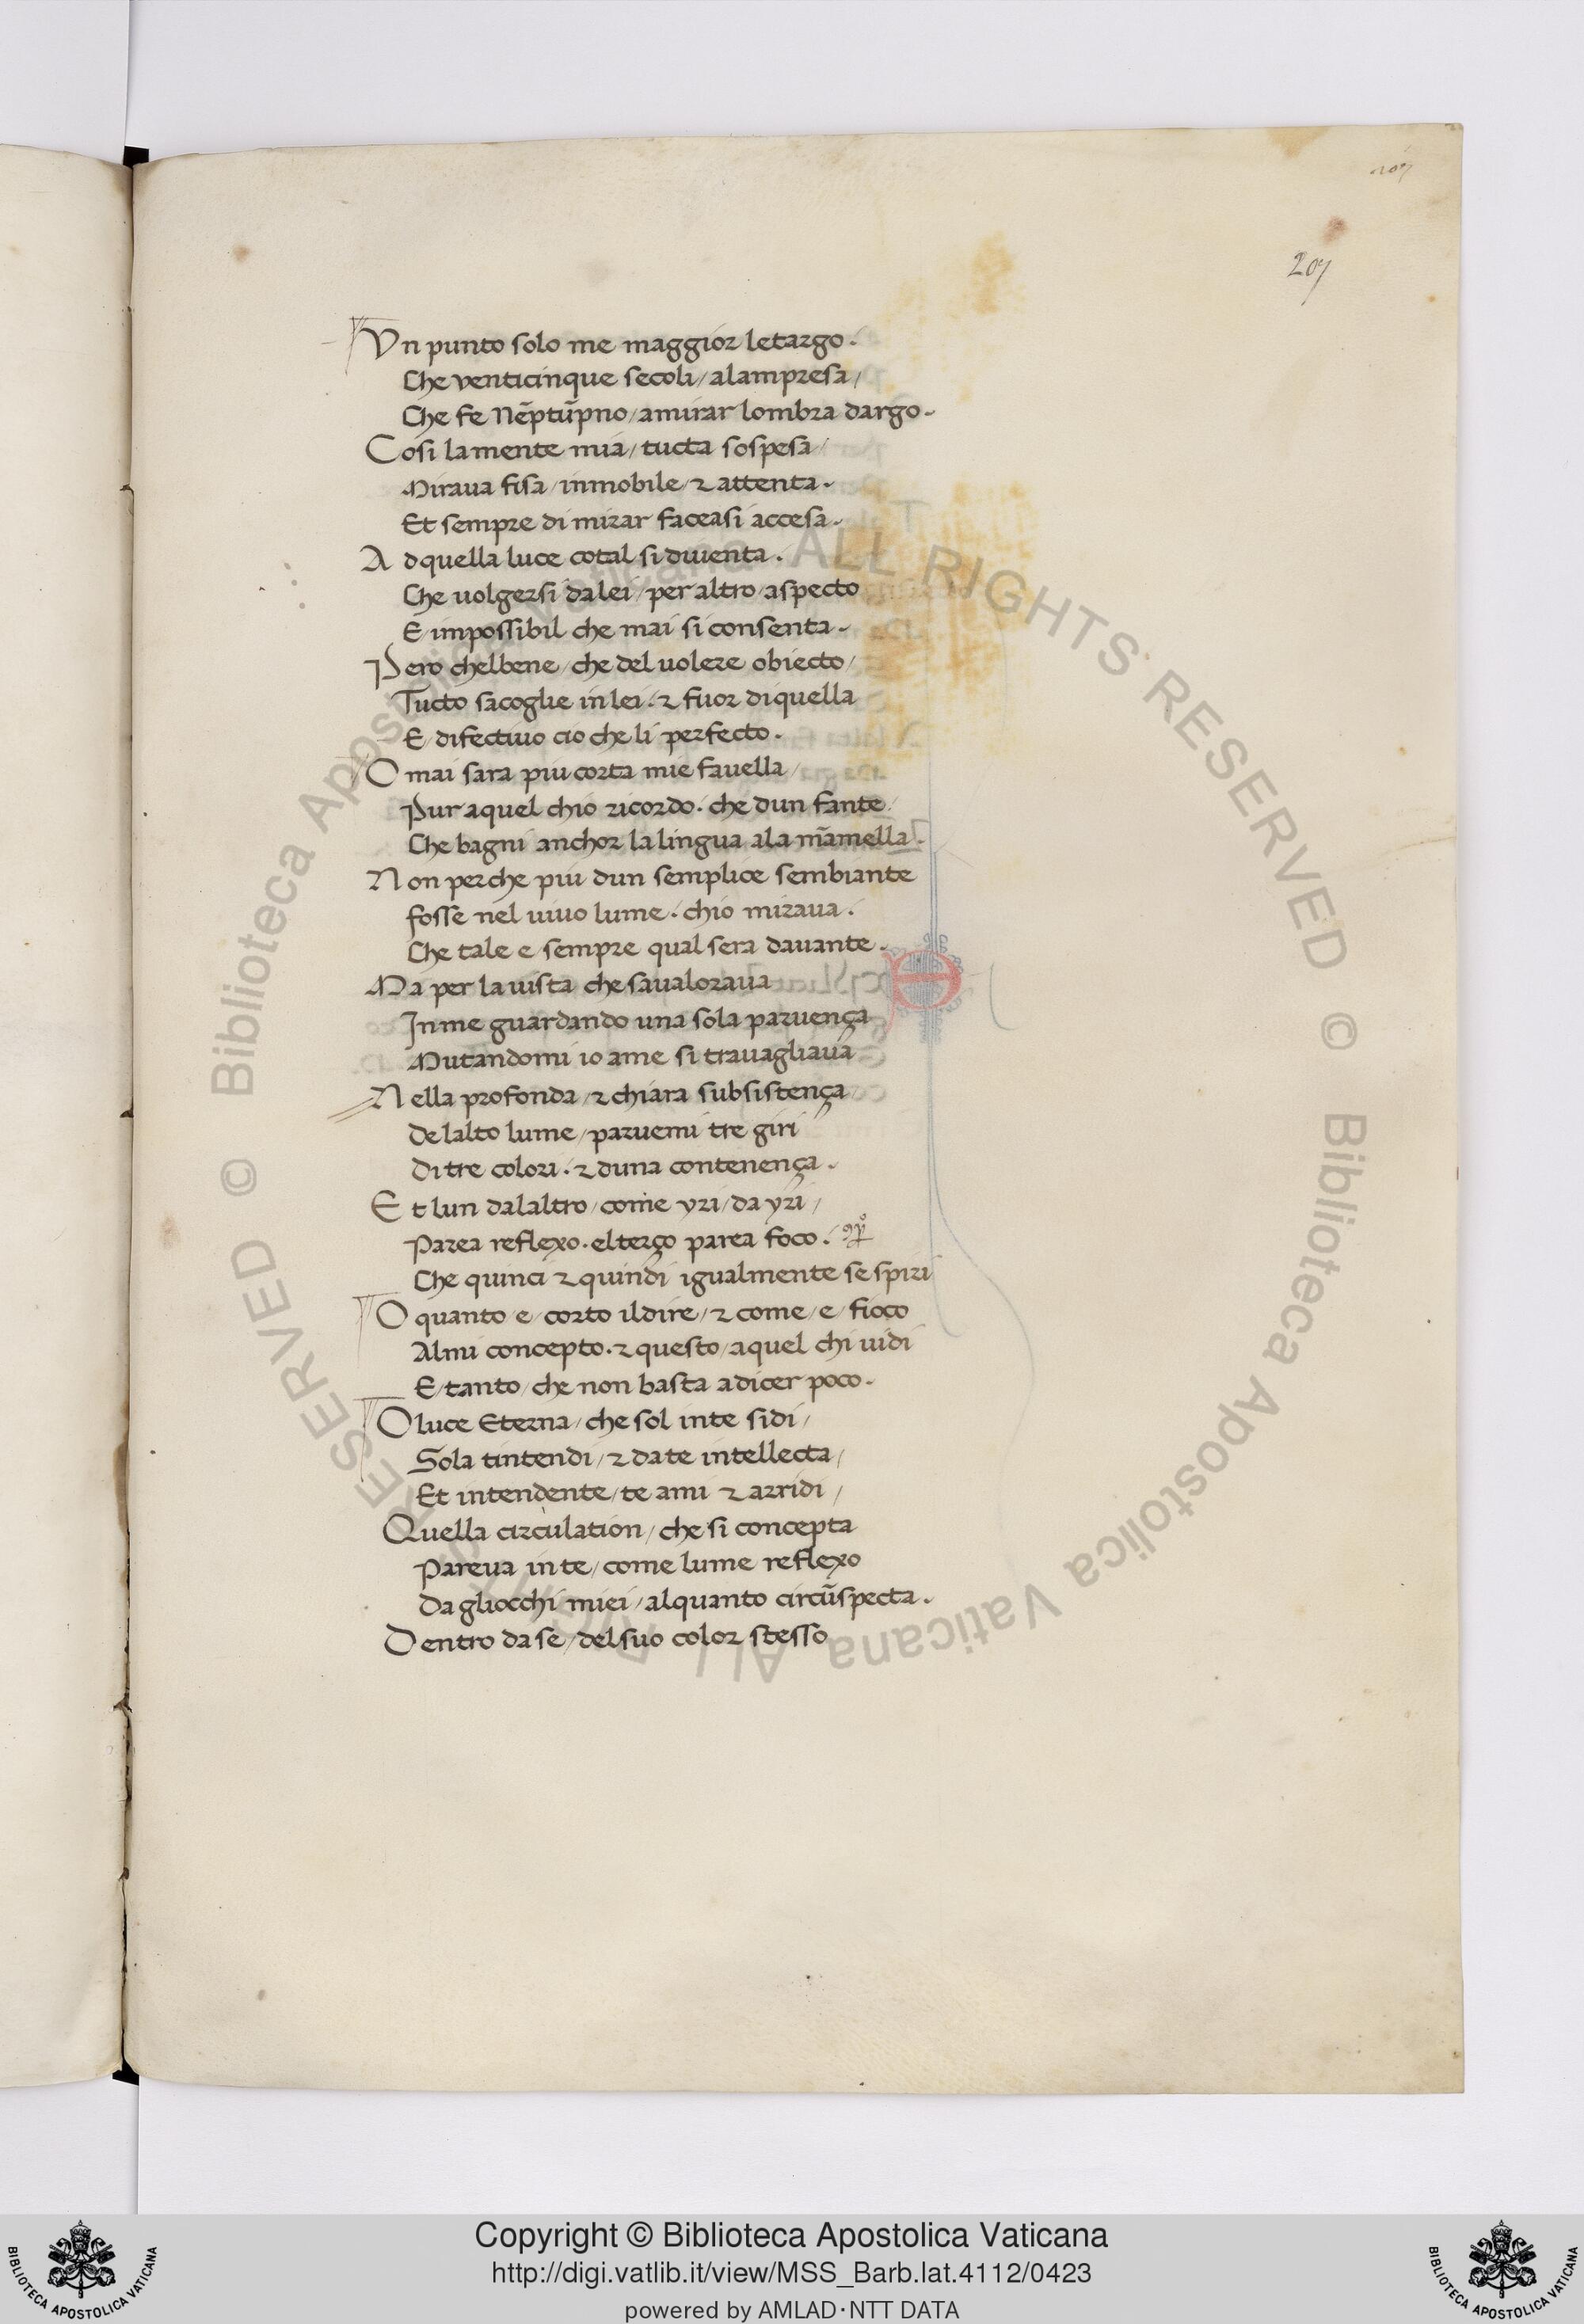 207
Vn punto solo me maggior letargo.
Che venticinque secoli/alampresa/
Che fe Nēptūpno/amirar lombra dargo.
Cosi lamente mia/tucta sospesa/
Miraua fisa/inmobile/⁊ attenta.
Et sempre di mirar faceasi accesa.
A dquella luce cotal si diuenta.
Che uolgersi dalei/per altro/aspecto
E/impossibil che mai si consenta.
Pero chelbene/che del uolere obiecto/
Tucto sacoglie in lei.⁊ fuor diquella
E/difectiuo cio che li perfecto.
O mai sara piu corta mie fauella/
Pur aquel chio ricordo.che dun fante.
Che bagni anchor la lingua ala māmella.
Non perche piu dun semplice sembiante
fosse nel uiuo lume.chio miraua.
Che tale e sempre qual sera dauante.
Ma per la uista che saualoraua
In me guardando una sola paruença
Mutandomi io ame si trauagliaua
Nella profonda/⁊ chiara subsistença
De lalto lume/paruemi tre giri
Di tre colori.⁊ duna contenença.
Et lun dalaltro/come yri/da yri/
Parea reflexo.elterço parea foco.
Che quinci ⁊ quindi igualmente se spiri
O quanto/e/corto ildire/⁊ come/e/fioco
Almi concepto.⁊ questo/aquel chi uidi
E/tanto/che non basta adicer poco.
O luce Eterna/che sol inte sidi/
Sola tintendi/⁊ da te intellecta/
Et intendente/te ami ⁊ arridi/
Quella circulation/che si concepta
Pareua in te/come lume reflexo
Da gliocchi miei/alquanto circūspecta.
Dentro da se/del suo color stesso
© Biblioteca Apostolica Vaticana ALL RIGHTS RESERVED © Biblioteca Apostolica Vaticana ALL RIGHTS RESERVED
Copyright © Biblioteca Apostolica Vaticana
http://digi.vatlib.it/view/MSS_Barb.lat.4112/0423
powered by AMLAD·NTT DATA
BIBLIOTECA APOSTOLICA VATICANA
BIBLIOTECA APOSTOLICA VATICANA